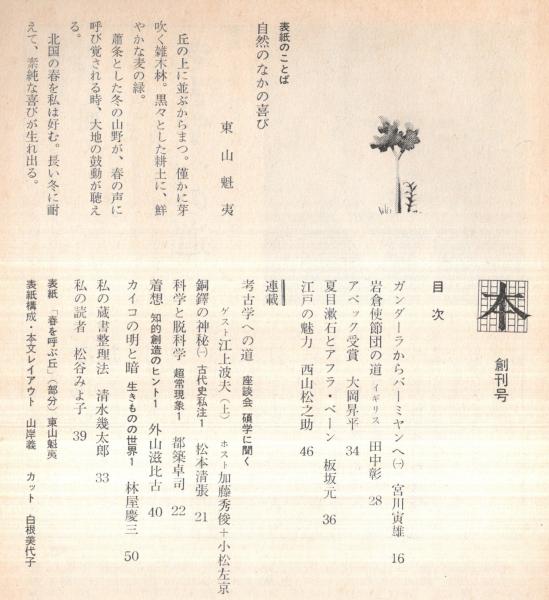 表紙のことば
自然のなかの喜び
東山魁夷
丘の上に並ぶからまつ。僅かに芽
吹く雑木林。黒々とした耕土に、鮮
やかな麦の緑。
蕭条とした冬の山野が、春の声に
呼び覚される時、大地の鼓動が聴え
る。
北国の春を私は好む。長い冬に耐
えて、素純な喜びが生れ出る。
本
創刊号
目次
ガンダーラからバーミヤンへ㈠ 宮川寅雄 16
岩倉使節団の道 イギリス 田中彰 28
アベック受賞 大岡昇平 34
夏目漱石とアフラ・ベーン 板坂元 36
江戸の魅力 西山松之助 46
連載
考古学への道 座談会 碩学に聞く
ゲスト 江上波夫(上) ホスト 加藤秀俊+小松左京
銅鐸の神秘㈠ 古代史私注1 松本清張 21
科学と脱科学 超常現象1 都築卓司 22
着想 知的創造のヒント1 外山滋比古 40
カイコの明と暗 生きものの世界1 林屋慶三 50
私の蔵書整理法 清水幾太郎 33
私の読者 松谷みよ子 39
表紙 「春を呼ぶ丘」(部分)東山魁夷
表紙構成・本文レイアウト 山岸義 カット 白根美代子